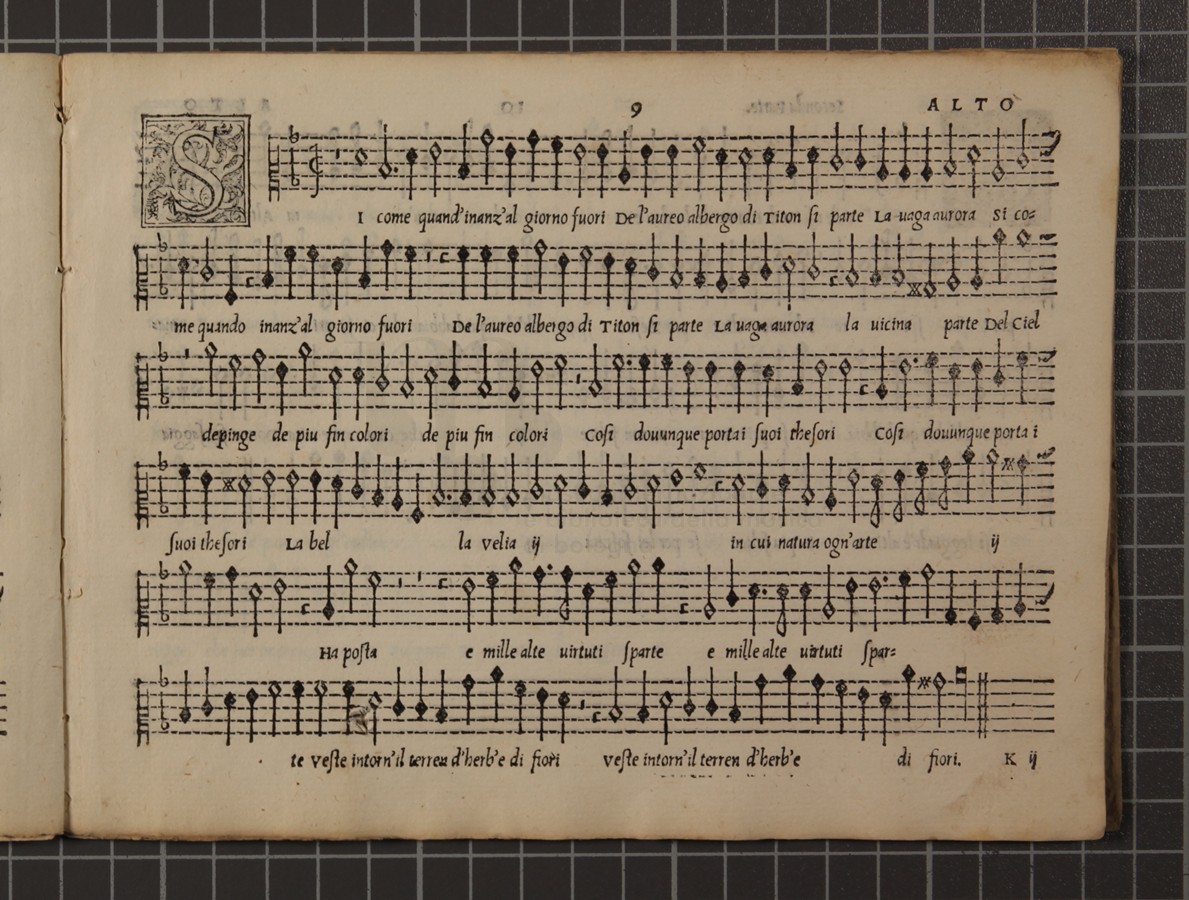 9 ALTO
S
I come quand'inanz'al giorno fuori De l'aureo albergo di Titon si parte La uaga aurora Si co=
me quando inanz'al giorno fuori De l'aureo albergo di Titon si parte La uaga aurora la uicina parte Del Ciel
depinge de piu fin colori de piu fin colori Cosi douunque porta i suoi thesori Cosi douunque porta i
suoi thesori La bel la velia ij in cui natura ogn'arte ij
Ha posta e mille alte uirtuti sparte e mille alte uirtuti spar=
te veste intorn'il terren d'herb'e di fiori veste intorn'il terren d'herb'e di fiori. K ij